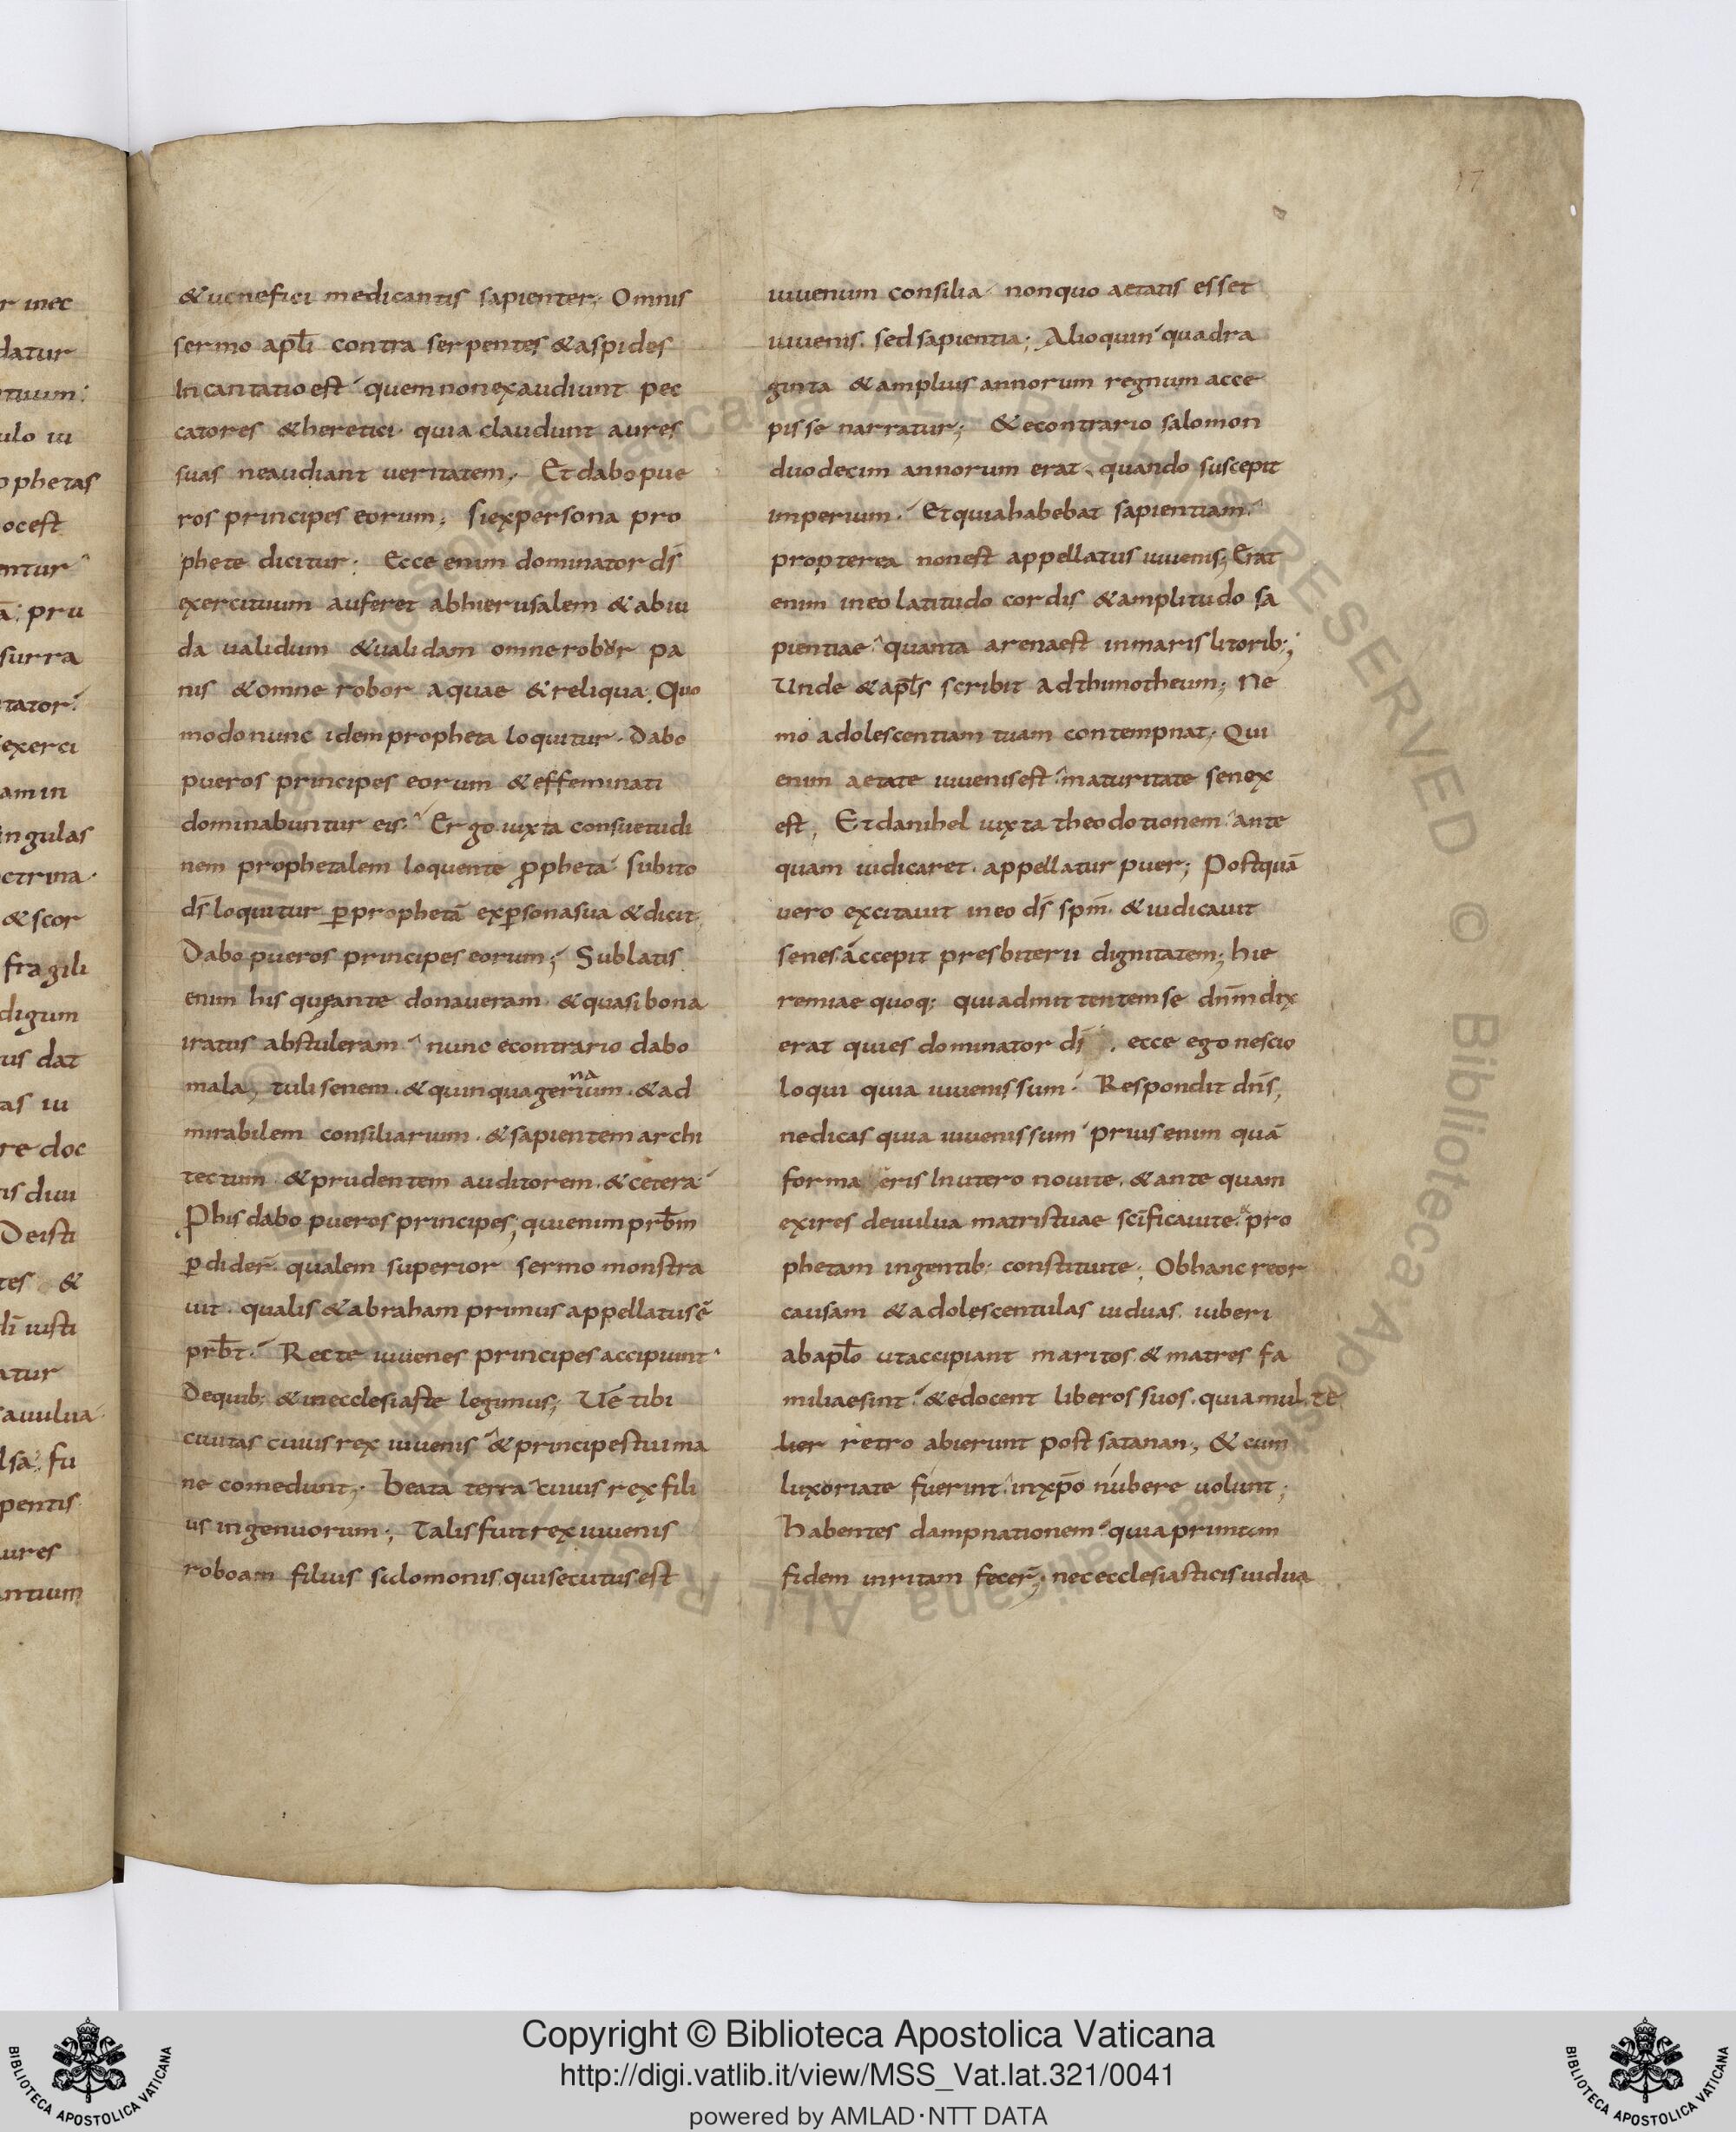 & uenefici medicantis sapienter; Omnis
sermo apłi contra serpentes & aspides
Incantatio est quem non exaudiunt pec
catores & heretici quia claudunt aures
suas ne audiant ueritatem; Et dabo pue
ros principes eorum; si ex persona pro
phete dicitur; Ecce enim dominator dš
exercituum auferet ab hierusalem & ab iu
da ualidum & ualidam omne robor pa
nis & omne robor aquae & reliqua; Quo
modo nunc idem propheta loquitur. Dabo
pueros principes eorum & effeminati
dominabuntur eis; Ergo iuxta consuetudi
nem prophetalem loquente ꝓpheta subito
dš loquitur ꝑ prophetā ex ꝑsona sua & dicit,
Dabo pueros principes eorum; Sublatis
enim his quę ante donaueram. & quasi bona
iratus abstuleram nunc econtrario dabo
mala, tuli senem. & quinquagenarium. & ad
mirabilem consiliarium. & sapientem archi
tectum & prudentem auditorem. & cetera
P his dabo pueros principes, qui enim prb̄m
ꝑdider̄ qualem superior sermo monstra
uit. qualis & abraham primus appellatus ē
prb̄t. Recte iuuenes principes accipiunt
De quib; & in ecclesiaste legimus; Ue tibi
ciuitas cuius rex iuuenis & principes tui ma
ne comedunt; Beata terra cuius rex fili
us ingenuorum; Talis fuit rex iuuenis
roboam filius salomonis. qui secutus est
iuuenum consilia non quo aetatis esset
iuuenis. sed sapientia; Alioquin quadra
ginta & amplius annorum regnum acce
pisse narratur; & econtrario salomon
duodecim annorum erat quando suscepit
imperium. Et quia habebat sapientiam
propterea non est appellatus iuuenis; Erat
enim in eo latitudo cordis & amplitudo sa
pientiae quanta arena est in maris litorib;;
Unde & apłs scribit ad thimotheum; Ne
mo adolescentiam tuam contempnat; Qui
enim aetate iuuenis est maturitate senex
est, Et danihel iuxta theodotionem ante
quam iudicaret. appellatur puer; Postquā
uero excitauit in eo dš spm̄. & iudicauit
senes accepit presbiterii dignitatem; hie
remiae quoq; qui admittentem se dnm̄ dix
erat qui es dominator dš. ecce ego nescio
loqui quia iuuenis sum. Respondit dnš,
ne dicas quia iuuenis sum prius enim quā
formaeris In utero noui te. & ante quam
exires de uulua matris tuae scīficaui te. & pro
phetam in gentib; constitui te; Ob hanc reor
causam & adolescentulas uiduas iuberi
ab apło ut accipiant maritos & matres fa
miliae sint & edocent liberos suos. quia multe
lier retro abierunt post satanan; & cum
luxoriate fuerint in xp̄o nubere uolunt;
habentes dampnationem quia primam
fidem inritam fecer̄; nec ecclesiasticis uidua
17
Copyright © Biblioteca Apostolica Vaticana
http://digi.vatlib.it/view/MSS_Vat.lat.321/0041
powered by AMLAD·NTT DATA